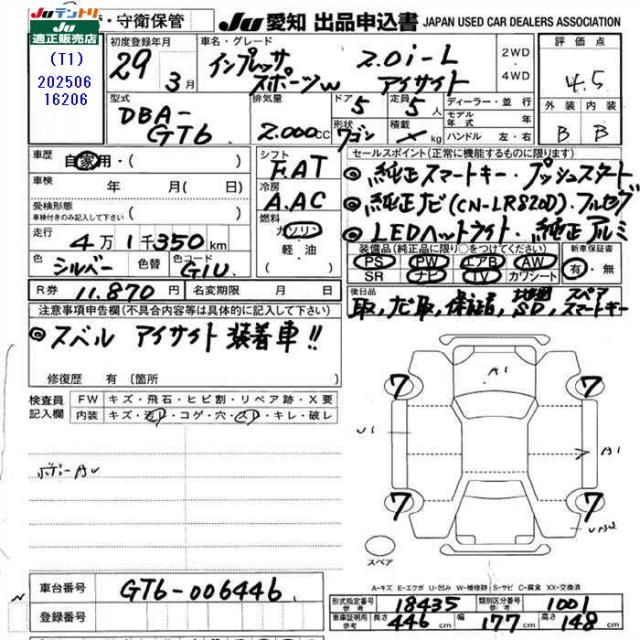 Juテントリ
Ju
適正販売店
(T1)
202506
16206
・守衛保管
Ju 愛知 出品申込書 JAPAN USED CAR DEALERS ASSOCIATION
初度登録年月
29年 3月
車名・グレード
インプレッサ 2.0i-L
スポーツW アイサイト
2WD
・
4WD
評価点
4.5
外装 内装
B B
型式
DBA-
GT6
排気量
2.000cc
ドア 5
定員 5人
形状 ワゴン
積載 kg
ディーラー・並行
モデル年式 年
ハンドル 左・右
車歴 自家用・( )
車検 年 月( 日)
受検形態
車検付きのみ記入して下さい ( )
走行 4万 1千350km
色 シルバー 色替 色コード G1U
R券 11.870円 名変期限 月 日
シフト F.AT
冷房 A.AC
燃料
ガソリン
軽・油
セールスポイント(正常に機能するものに限ります)
◎純正スマートキー・プッシュスタート
◎純正ナビ(CN-LR820D)・フルセグ
◎LEDヘッドライト・純正アルミ
装備品(純正品に限り○をつけてください) 新車保証書
PS PW エアB AW 有・無
SR ナビ TV カワシート
後日品
取、ナビ取、保証書、地図SD、スペアスマートキー
注意事項申告欄(不具合内容等は具体的に記入して下さい)
◎スバル アイサイト装着車!!
修復歴 有(箇所
検査員記入欄
FW キズ・飛石・ヒビ割・リペア跡・X要
内装 キズ・汚レ・コゲ・穴・スレ・キレ・破レ
7 7
A1
U1
A1
7 7
スペア
A-キズ E-エクボ U-凹み W-補修跡 S-サビ C-腐食 XX-交換済
車台番号 GT6-006446
登録番号
形式指定番号 参考 18435 類別区分番号 参考 1001
車庫証明用 参考 長さ 446cm 幅 177cm 高さ 148cm